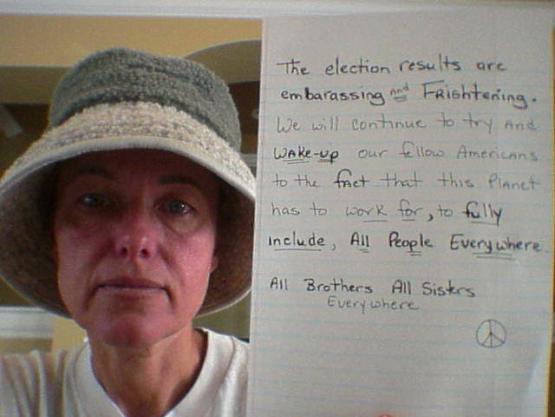 The election results are
embarassing and Frightening.
We will continue to try and
WAKE-up our fellow Americans
to the fact that this Planet
has to work for, to fully
include, All People Everywhere
All Brothers All Sisters
Everywhere